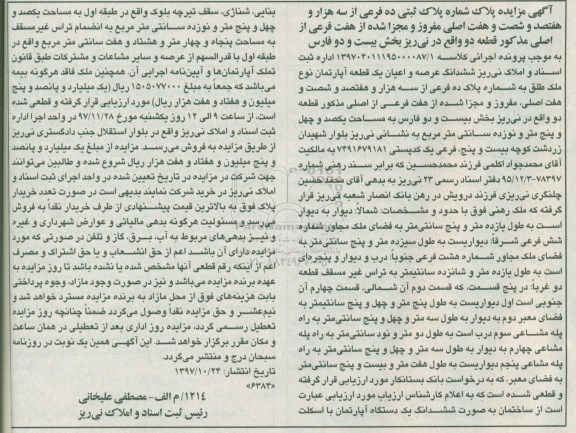 آگهی مزایده پلاک شماره پلاک ثبتی ده فرعی از سه هزار و
هفتصد و شصت و هفت اصلی مفروز و مجزا شده از هفت فرعی از
اصلی مذکور قطعه دو واقع در نی‌ریز بخش بیست و دو فارس
به موجب پرونده اجرائی کلاسه ۱۳۹۷۰۴۰۱۱۱۹۵۰۰۰۰۸۷/۱ اداره ثبت
اسناد و املاک نی‌ریز ششدانگ عرصه و اعیان یک قطعه آپارتمان نوع
ملک طلق به شماره پلاک ده فرعی از سه هزار و هفتصد و شصت و
هفت اصلی، مفروز و مجزا شده از هفت فرعی از اصلی مذکور قطعه
دو واقع در نی‌ریز بخش بیست و دو فارس به مساحت یکصد و چهل
و پنج متر و نوزده سانتی متر مربع به نشانی نی‌ریز بلوار شهیدان
زردشت کوچه بیست و پنج، فرعی یک کدپستی ۷۴۹۱۶۷۹۱۸۱ به مالکیت
آقای محمدجواد اکلمی فرزند محمدحسین که برابر سند رهنی شماره
۷۸۳۹۷-۹۵/۱۲/۳ دفتر اسناد رسمی ۲۳ نی‌ریز به بدهی آقای محمدحسین
چلنگری نی‌ریزی فرزند درویش در رهن بانک انصار شعبه نی‌ریز قرار
گرفته که ملک رهنی فوق با حدود و مشخصات: شمالاً: دیوار به دیوار
است به طول یازده متر و پنج سانتی‌متر به فضای ملک مجاور شماره
شش فرعی شرقاً: دیواریست به طول سیزده متر و پنج سانتی‌متر به
فضای ملک مجاور شماره هشت فرعی جنوباً: درب و دیوار و پنجره‌ای
است به طول یازده متر و شانزده سانتیمتر به تراس غیر مسقف قطعه
دو غرباً: در پنج قسمت، که قسمت دوم آن شمالی، قسمت چهارم آن
جنوبی است اول دیواریست به طول پنج متر و چهل و پنج سانتیمتر به
فضای معبر دوم به دیوار به طول سه متر و چهل و پنج سانتی‌متر به راه
پله مشاعی سوم درب است به طول دو متر و نود سانتی‌متر به راه پله
مشاعی چهارم به دیوار به طول سه متر و چهل و پنج سانتی‌متر به راه
پله مشاعی پنجم دیواریست به طول هفت متر و بیست و پنج سانتی‌متر
به فضای معبر، که به درخواست بانک بستانکار مورد ارزیابی قرار گرفته
و قطعی شده است که به اعلام کارشناس ارزیاب مورد ارزیابی عبارت
است از ساختمان به صورت ششدانگ یک دستگاه آپارتمان با اسکلت
بنایی، شناژی، سقف تیرچه بلوک واقع در طبقه اول به مساحت یکصد و
چهل و پنج متر و نوزده سانتی متر مربع به انضمام تراس غیرمسقف
به مساحت پنجاه و چهار متر و هشتاد و هفت سانتی متر مربع واقع در
طبقه اول با قدرالسهم از عرصه و سایر مشاعات و مشترکات طبق قانون
تملک آپارتمان‌ها و آیین‌نامه اجرایی آن. همچنین ملک فاقد هرگونه بیمه
می‌باشد که جمعاً به مبلغ ۱۵۰۵۰۷۷۰۰۰ ریال (یک میلیارد و پانصد و پنج
میلیون و هفتاد و هفت هزار ریال) مورد ارزیابی قرار گرفته و قطعی شده
است، از ساعت ۹ الی ۱۲ روز یکشنبه مورخ ۹۷/۱۱/۲۸ در واحد اجرا اداره
ثبت اسناد و املاک نی‌ریز واقع در بلوار استقلال جنب دادگستری نی‌ریز
از طریق مزایده به فروش می‌رسد. مزایده از مبلغ یک میلیارد و پانصد
و پنج میلیون و هفتاد و هفت هزار ریال شروع شده و طالبین می‌توانند
جهت شرکت در مزایده در تاریخ تعیین شده در واحد اجرای ثبت اسناد و
املاک نی‌ریز در خرید شرکت نمایند بدیهی است در صورت تعدد خریدار
پلاک فوق به بالاترین قیمت پیشنهادی از طرف خریدار نقداً به فروش
می‌رسد و مسئولیت هرگونه بدهی مالیاتی و عوارض شهرداری و غیره
و نیز بدهی‌های مربوط به آب، برق، گاز و تلفن در صورتی که مورد
مزایده دارای آن باشد اعم از حق انشعاب و یا حق اشتراک و مصرف
اعم از اینکه رقم قطعی آنها مشخص شده یا نشده باشد تا روز مزایده به
عهده برنده مزایده می‌باشد و نیز در صورت وجود مازاد، وجوه پرداختی
بابت هزینه‌های فوق از محل مازاد به برنده مزایده مسترد خواهد شد و
نیم‌عشر و حق مزایده نقداً وصول می‌گردد ضمناً چنانچه روز مزایده
تعطیل رسمی گردد، مزایده روز اداری بعد از تعطیلی در همان ساعت
و مکان مقرر برگزار خواهد شد. این آگهی همین یک نوبت در روزنامه
سبحان درج و منتشر می‌گردد.
تاریخ انتشار: ۱۳۹۷/۱۰/۲۴
«۶۳۸۴»
۱۲۱۴/ م الف- مصطفی علیخانی
رئیس ثبت اسناد و املاک نی‌ریز